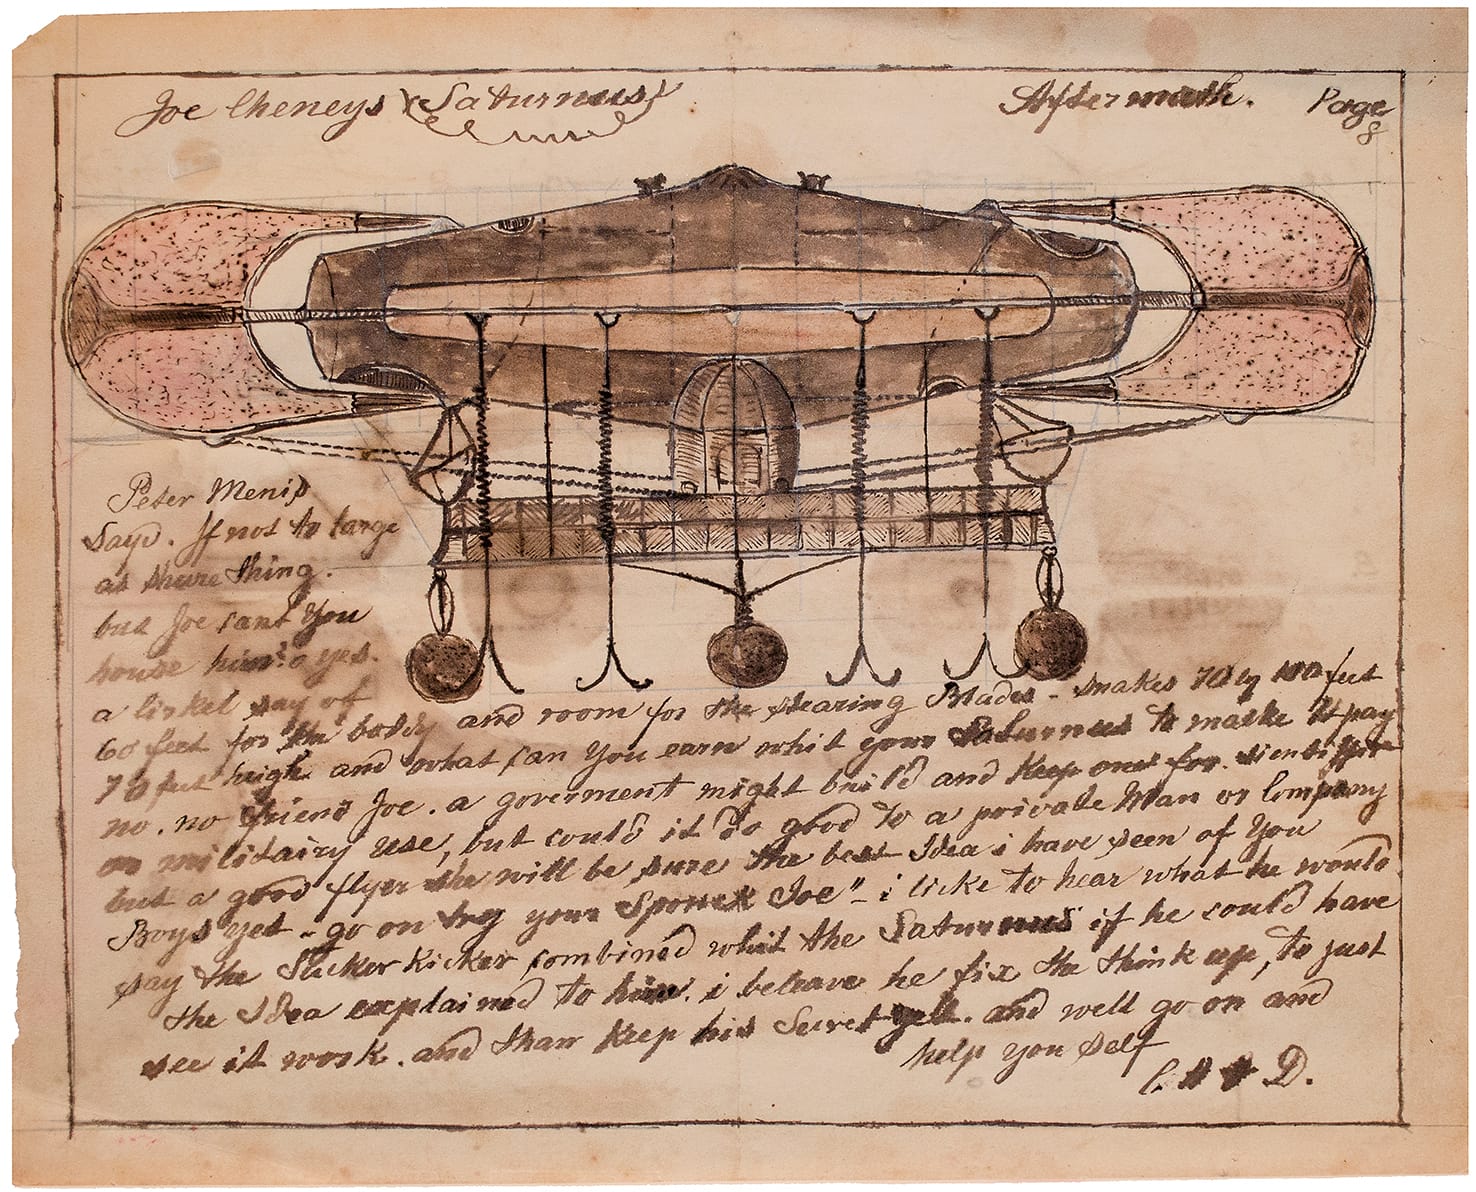 Joe Cheneys (Saturnus)
Aftermath. Page
8
Peter Menis
Says. If not to large
as shure thing.
but Joe cant You
house him? o yes.
a lirkel say of
60 feet for the boddy and room for the stearing Blades - makes 70 by 100 feet
70 feet heigh and what can you earn whit your Saturnus to make it pay
no. no friend Joe. a goverment might build and keep one for sientiffic
or militairy use, but could it do good to a private Man or Company
but a good flyer she will be sure the best Idea i have seen of You
Boys yet - go on try your Joe" - i licke to hear what he would
say the combined whit the Saturnus if he could have
the Idea explained to him. i beleave he fix the think up, to just
see it work. and than keep his Secret yett. and well go on and
help you self
D.